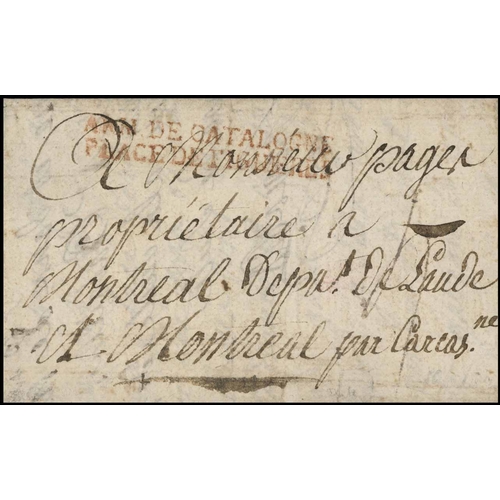 ARM. DE CATALOGNE
PLACE DE
A Monsieur pages
propriétaire a
Montreal Depat. de Laude
A Montreal par Carcas.ne